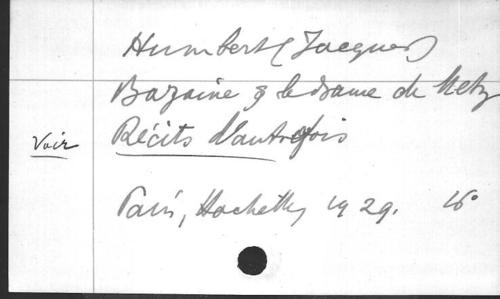 Humbert (Jacques)
Bazaine & le drame de Metz
Voir Récits d'autrefois
Paris, Hachette, 1929. 16°